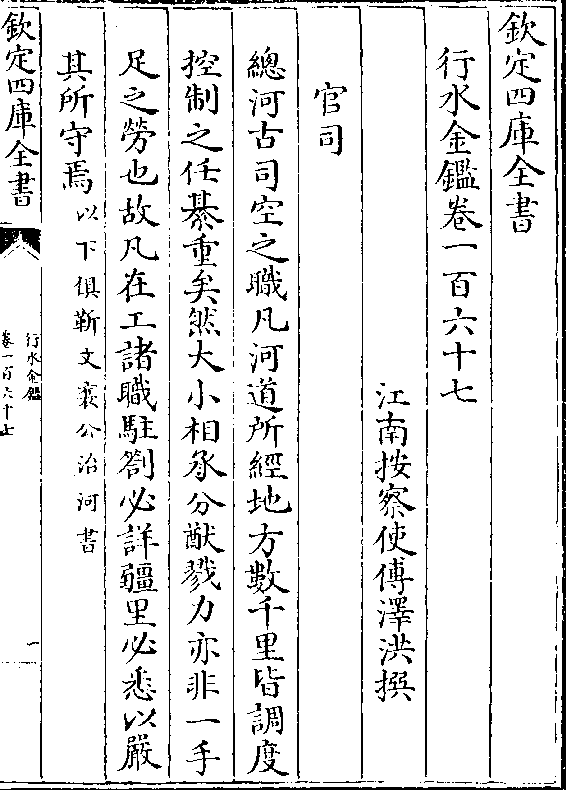 欽定四庫全書
行水金鑑卷一百六十七
江南按察使傅澤洪撰
官司
總河古司空之職凡河道所經地方數千里皆調度
控制之任綦重矣然大小相承分猷戮力亦非一手
足之勞也故凡在工諸職駐劄必詳疆里必悉以嚴
其所守焉以下俱靳文襄公治河書
欽定四庫全書
行水金鑑
卷一百六十七
一